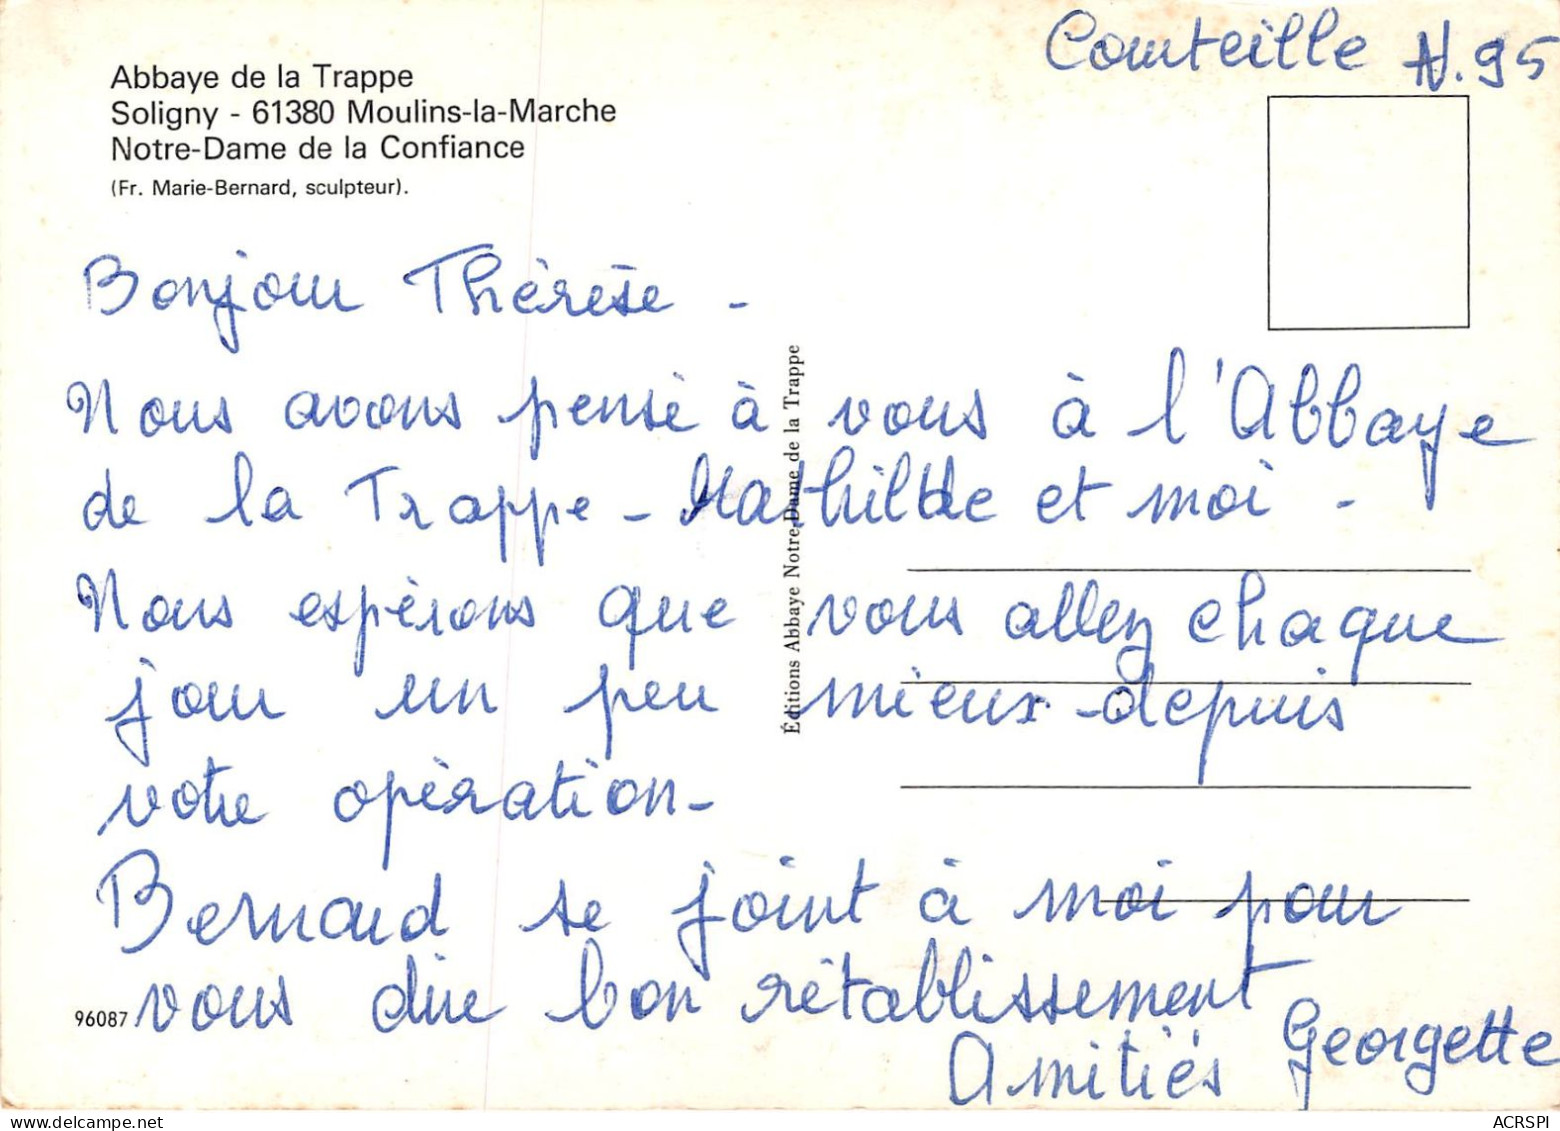 Comteille N.95
Abbaye de la Trappe
Soligny - 61380 Moulins-la-Marche
Notre-Dame de la Confiance
(Fr. Marie-Bernard, sculpteur).
Bonjour Thérèse -
Nous avons pensé à vous à l'Abbaye
de la Trappe - Mathilde et moi -
Nous espérons que vous allez chaque
jour un peu mieux - depuis
votre opération -
Bernard se joint à moi pour
vous dire bon rétablissement
Amitiés Georgette
Éditions Abbaye Notre-Dame de la Trappe
96087
ACRSPI